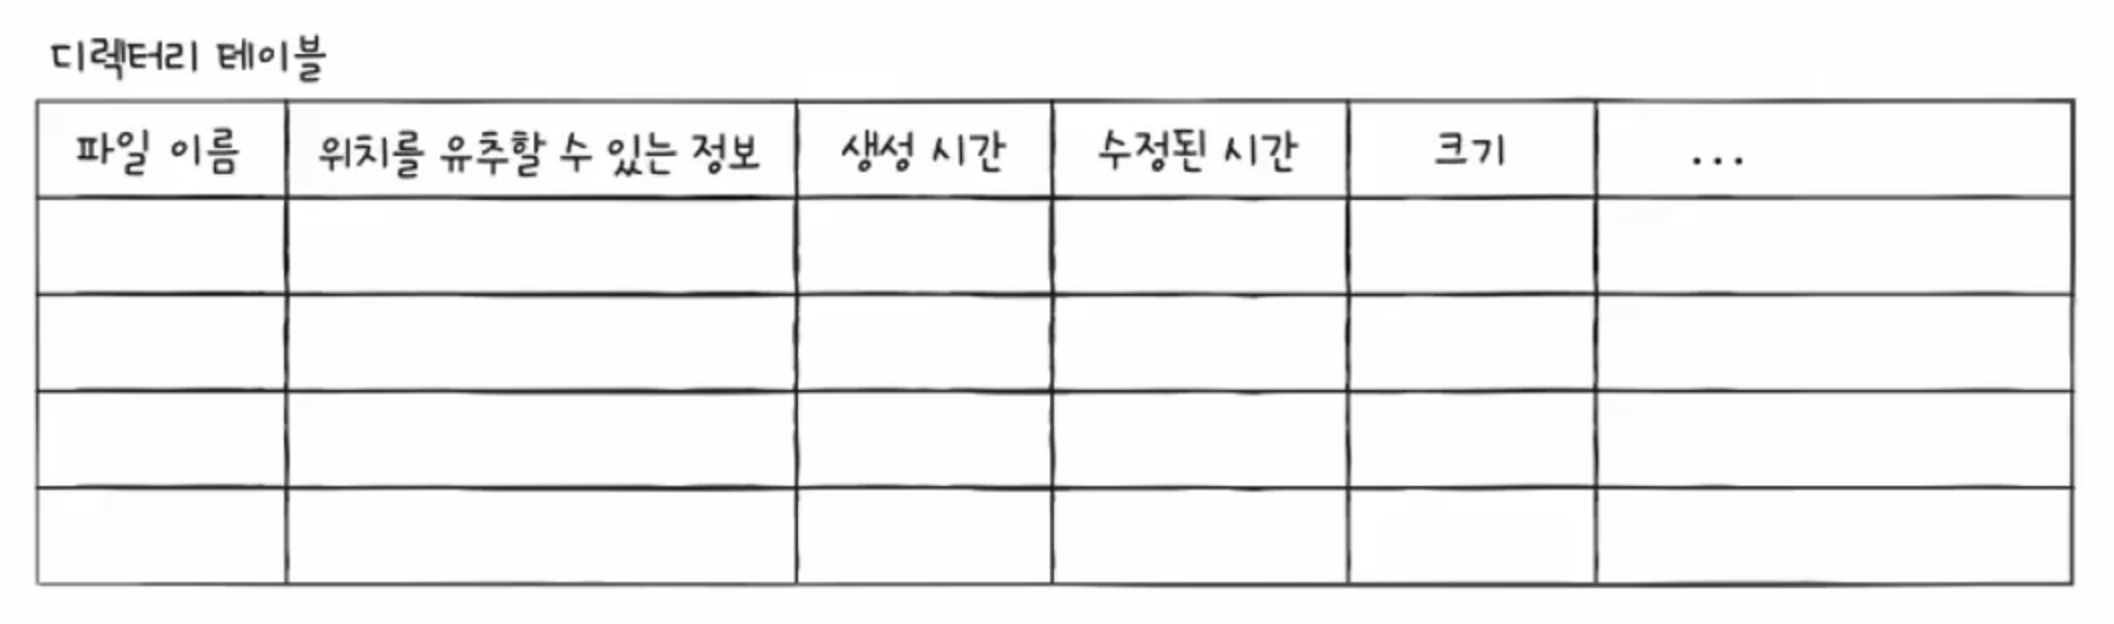 디렉터리 테이블
파일 이름 위치를 유추할 수 있는 정보 생성 시간 수정된 시간 크기 ...